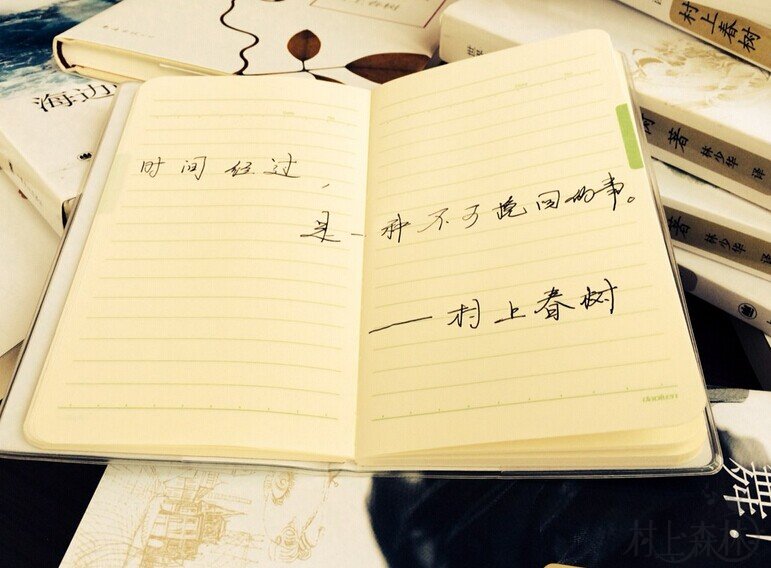 上春树
村上春树
海边
时间经过，
是一种不可挽回的事。
——村上春树
著 林少华 译
著 林少华 译
舞！
村上森林